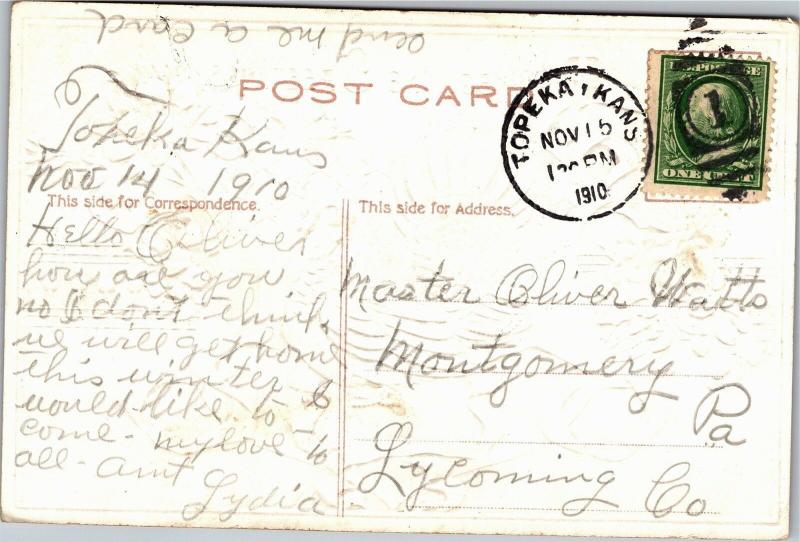 send me a card
POST CARD
TOPEKA, KANS
NOV 15
1910
POSTAGE
1
ONE CENT
Topeka Kans
Nov 14 1910
This side for Correspondence.
Hello Oliver
how are you
no I dont think
we will get home
this winter I
would like to
come - my love to
all - aunt
Lydia
This side for Address.
Master Oliver Watts
Montgomery
Pa
Lycoming Co